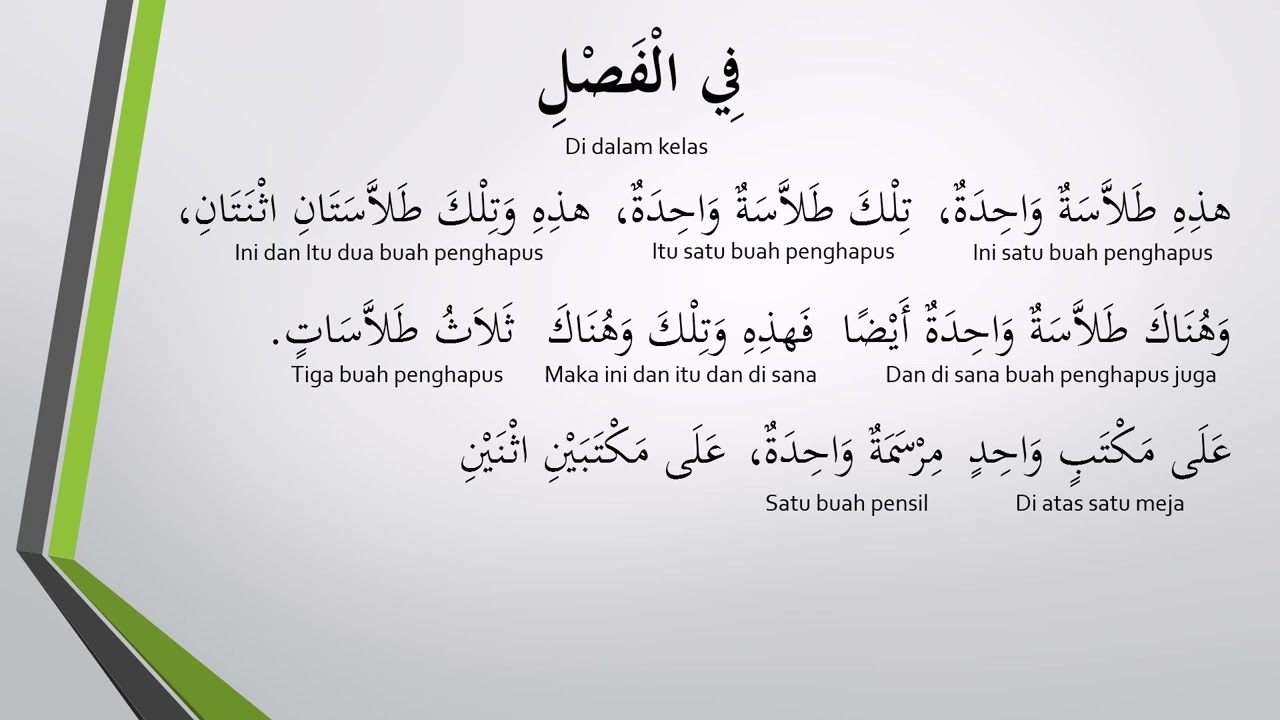 فِي الْفَصْلِ
Di dalam kelas
هذِهِ طَلاَّسَةٌ وَاحِدَةٌ، تِلْكَ طَلاَّسَةٌ وَاحِدَةٌ، هذِهِ وَتِلْكَ طَلاَّسَتَانِ اثْنَتَانِ،
Ini satu buah penghapus Itu satu buah penghapus Ini dan Itu dua buah penghapus
وَهُنَاكَ طَلاَّسَةٌ وَاحِدَةٌ أَيْضًا فَهذِهِ وَتِلْكَ وَهُنَاكَ ثَلاَثُ طَلاَّسَاتٍ.
Dan di sana buah penghapus juga Maka ini dan itu dan di sana Tiga buah penghapus
عَلَى مَكْتَبٍ وَاحِدٍ مِرْسَمَةٌ وَاحِدَةٌ، عَلَى مَكْتَبَيْنِ اثْنَيْنِ
Di atas satu meja Satu buah pensil